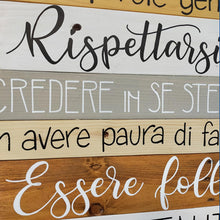 Rispettarsi
CREDERE IN SE STE
n avere paura di fa
Essere foll